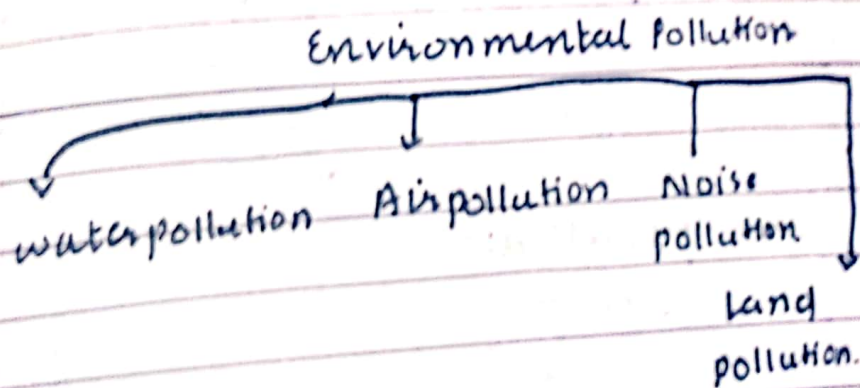 Environmental Pollution
water pollution Air pollution Noise
pollution
Land
pollution.